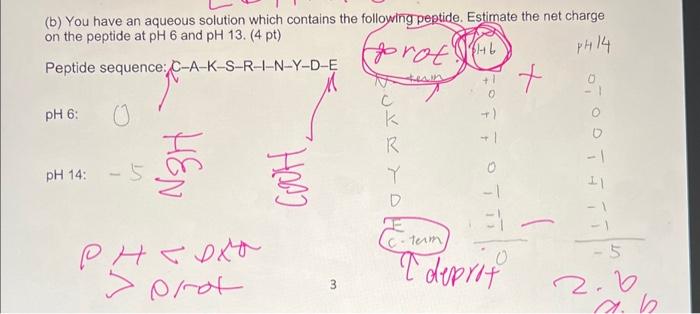 (b) You have an aqueous solution which contains the following peptide. Estimate the net charge
on the peptide at pH 6 and pH 13. (4 pt)
prot pH 6 pH 14
Peptide sequence: C–A–K–S–R–I–N–Y–D–E
N-term +1 + 0
C 0 -1
pH 6: 0
K +1 0
R +1 0
pH 14: -5
N3H
COOH
Y 0 -1
D -1
E -1 - -1
C-term -1 -1
0 -5
pH < pKa
> prot
↑ deprot
3
2. b